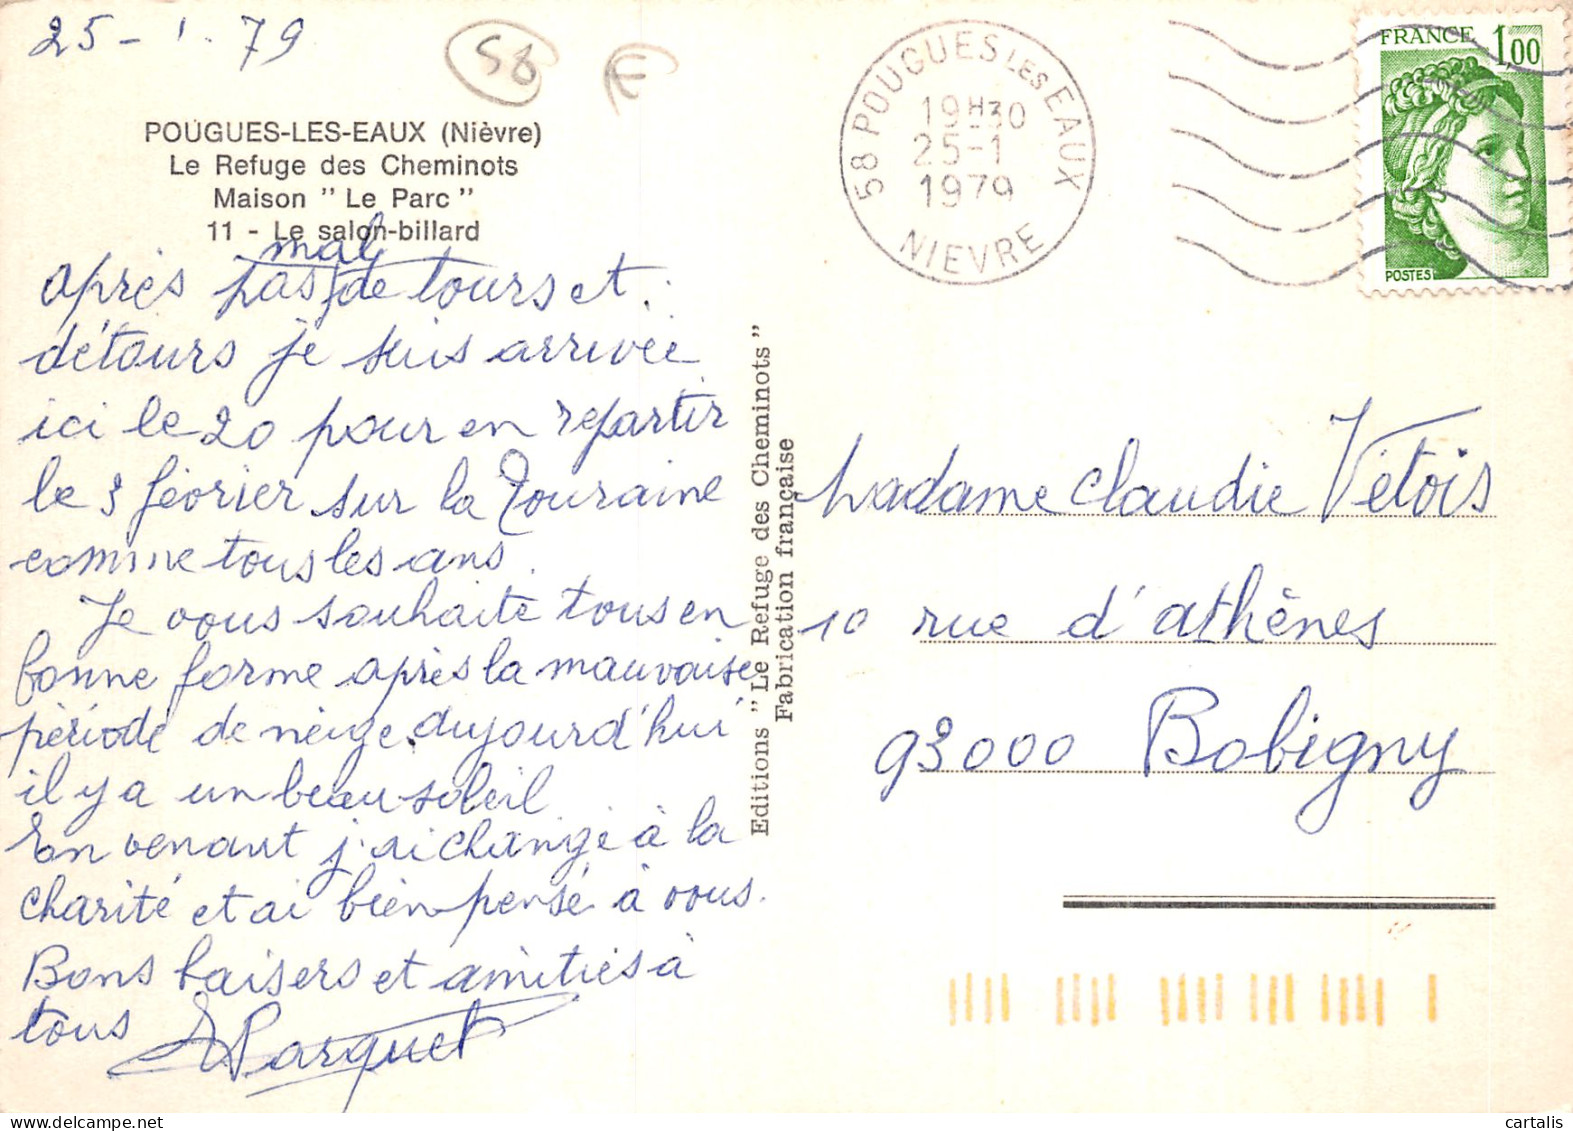 25-1.79
58
POUGUES-LES-EAUX (Nièvre)
Le Refuge des Cheminots
Maison "Le Parc"
11 - Le salon-billard
mal
après pas de tours et
détours je suis arrivée
ici le 20 pour en repartir
le 3 février sur la Touraine
comme tous les ans.
Je vous souhaite tous en
bonne forme après la mauvaise
période de neige. aujourd'hui
il y a un beau soleil
En venant j'ai changé à la
charité et ai bien pensé à vous.
Bons baisers et amitiés à
tous
Parquet
Editions "Le Refuge des Cheminots"
Fabrication française
58 POUGUES LES EAUX
19H30
25-1
1979
NIEVRE
FRANCE 1,00
POSTES
Madame Claudie Vétois
10 rue d'athènes
93000 Bobigny
cartalis